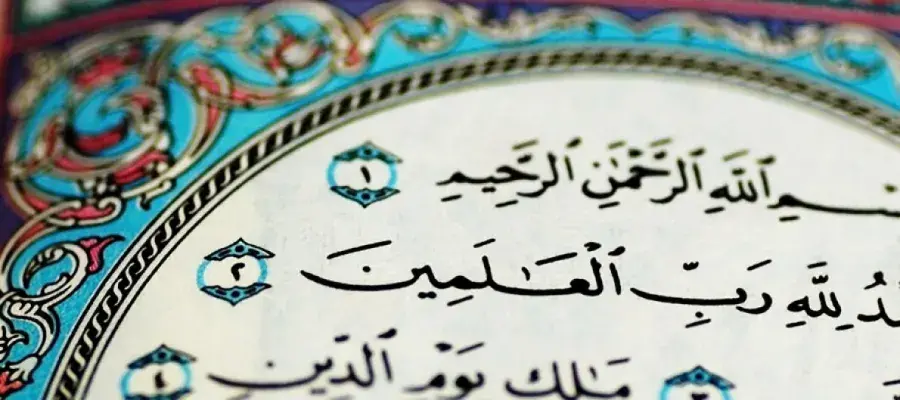 ـسْمِ ٱللَّهِ ٱلرَّحْمَٰنِ ٱلرَّحِيمِ ١
ـدُ لِلَّهِ رَبِّ ٱلْعَٰلَمِينَ ٢
٣ مَٰلِكِ يَوْمِ ٱلدِّينِ ٤